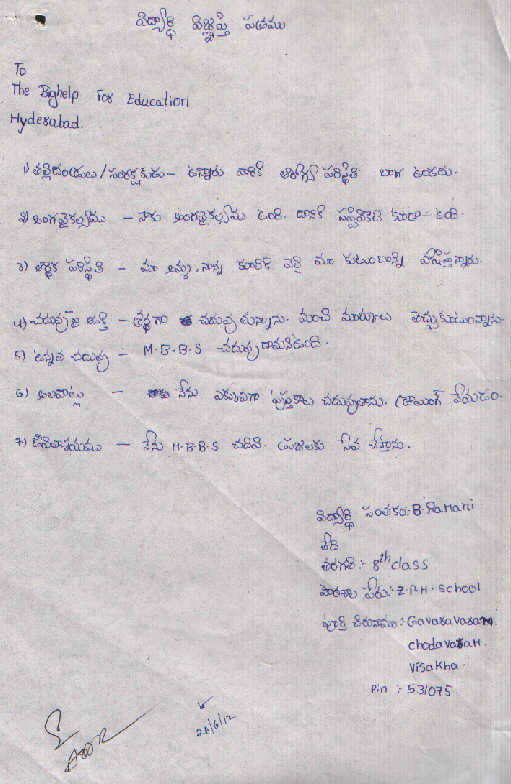 విద్యార్థి విజ్ఞప్తి పత్రము
To
The Bighelp For Education
Hyderabad.
1) తల్లిదండ్రులు/సంరక్షకుడు - ఉన్నారు వారికి ఆరోగ్య పరిస్థితి బాగ ఉండదు.
2) అంగవైకల్యము - నాకు అంగవైకల్యమే ఉంది. దానికి సర్టిఫికెట్ కూడా ఉంది.
3) ఆర్థిక పరిస్థితి - మా అమ్మ, నాన్న కూలికి వెళ్లి మా కుటుంబాన్ని పోషిస్తున్నారు.
4) చదువుపై ఆసక్తి - శ్రద్ధగా చదువుతున్నాను. మంచి మార్కులు తెచ్చుకుంటున్నాను
5) ఉన్నత చదువు - M.B.B.S చదువుదామనివుంది.
6) అలవాట్లు - నేను ఎక్కువగా పుస్తకాలు చదువుతాను. డ్రాయింగ్ వేయడం.
7) జీవితాశయము - నేను M.B.B.S చదివి ప్రజలకు సేవ చేస్తాను.
విద్యార్థి సంతకం: B. Ramani
తేది
తరగతి :- 8th class
పాఠశాల పేరు :- Z.P.H. School
పూర్తి చిరునామా :- Gavaravaram
chodavaram.
Visakha.
Pin :- 531075
26/6/12